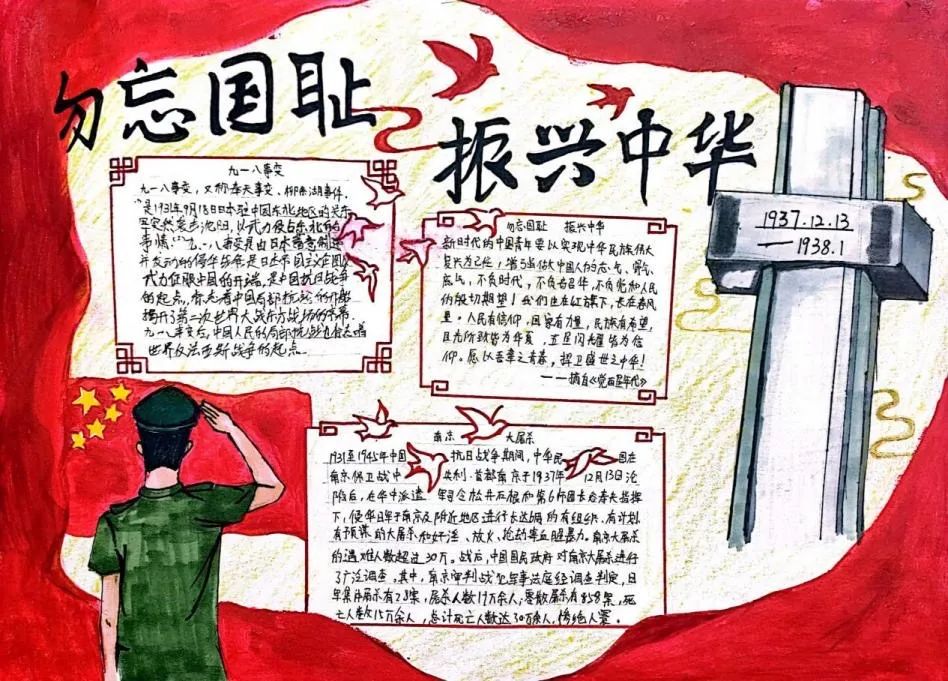 勿忘国耻
振兴中华
九一八事变
九一八事变,又称奉天事变、柳条湖事件。
是1931年9月18日日本驻中国东北地区的关东
军突然袭击沈阳,以武力侵占东北的
事情。九一八事变是由日本蓄意制造
并发动的侵华战争,是日本帝国主义企图以
武力征服中国的开端,是中国抗日战争
的起点,标志着中国局部抗战的开始
揭开了第二次世界大战东方战场的序幕。
九一八事变后,中国人民的局部抗战也
世界反法西斯战争的起点
勿忘国耻 振兴中华
新时代的中国青年要以实现中华民族伟大
复兴为己任,增强做中国人的志气、骨气、
底气,不负时代,不负韶华,不负党和人民
的殷切期望!我们生在红旗下,长在春风
里。人民有信仰,国家有力量,民族有希望,
目光所致皆为华夏,五星闪耀皆为信
仰。愿以吾辈之青春,捍卫盛世之中华!
——摘自《觉醒年代》
1937.12.13
—1938.1
南京大屠杀
1931至1945年中国抗日战争期间,中华民国在
南京保卫战中失利、首都南京于1937年12月13日沦
陷后,在华中派遣军司令松井石根和第6师团长谷寿夫指挥
下,侵华日军于南京及附近地区进行长达的有组织、有计划
有预谋的大屠杀和奸淫、放火、抢劫等血腥暴力。南京大屠杀
的遇难人数超过30万。战后,中国国民政府对南京大屠杀进行
了广泛调查。其中,南京审判战犯军事法庭经调查判定,日
军集体屠杀有28案,屠杀人数19万余人;零散屠杀有858案,死
亡人数15万余人,总计死亡人数达30万余人,惨绝人寰。